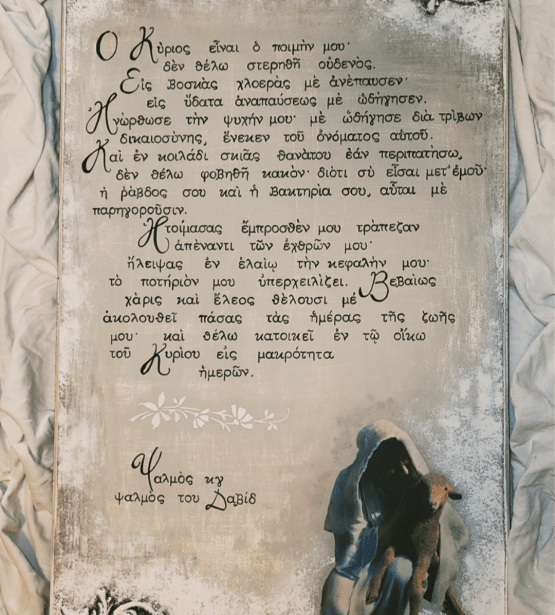 Ὁ Κύριος εἶναι ὁ ποιμήν μου·
δὲν θέλω στερηθῆ οὐδενός.
Εἰς βοσκὰς χλοερὰς μὲ ἀνέπαυσεν·
εἰς ὕδατα ἀναπαύσεως μὲ ὡδήγησεν.
Ἠνώρθωσε τὴν ψυχήν μου· μὲ ὡδήγησε διὰ τρίβων
δικαιοσύνης, ἕνεκεν τοῦ ὀνόματος αὐτοῦ.
Καὶ ἐν κοιλάδι σκιᾶς θανάτου ἐὰν περιπατήσω,
δὲν θέλω φοβηθῆ κακόν· διότι σὺ εἶσαι μετ' ἐμοῦ·
ἡ ῥάβδος σου καὶ ἡ βακτηρία σου, αὗται μὲ
παρηγοροῦσιν.
Ἡτοίμασας ἔμπροσθέν μου τράπεζαν
ἀπέναντι τῶν ἐχθρῶν μου·
ἤλειψας ἐν ἐλαίῳ τὴν κεφαλήν μου·
τὸ ποτήριόν μου ὑπερχειλίζει. Βεβαίως
χάρις καὶ ἔλεος θέλουσι μέ
ἀκολουθεῖ πάσας τὰς ἡμέρας τῆς ζωῆς
μου· καὶ θέλω κατοικεῖ ἐν τῷ οἴκῳ
τοῦ Κυρίου εἰς μακρότητα
ἡμερῶν.
Ψαλμὸς κγ
ψαλμὸς του Δαβίδ